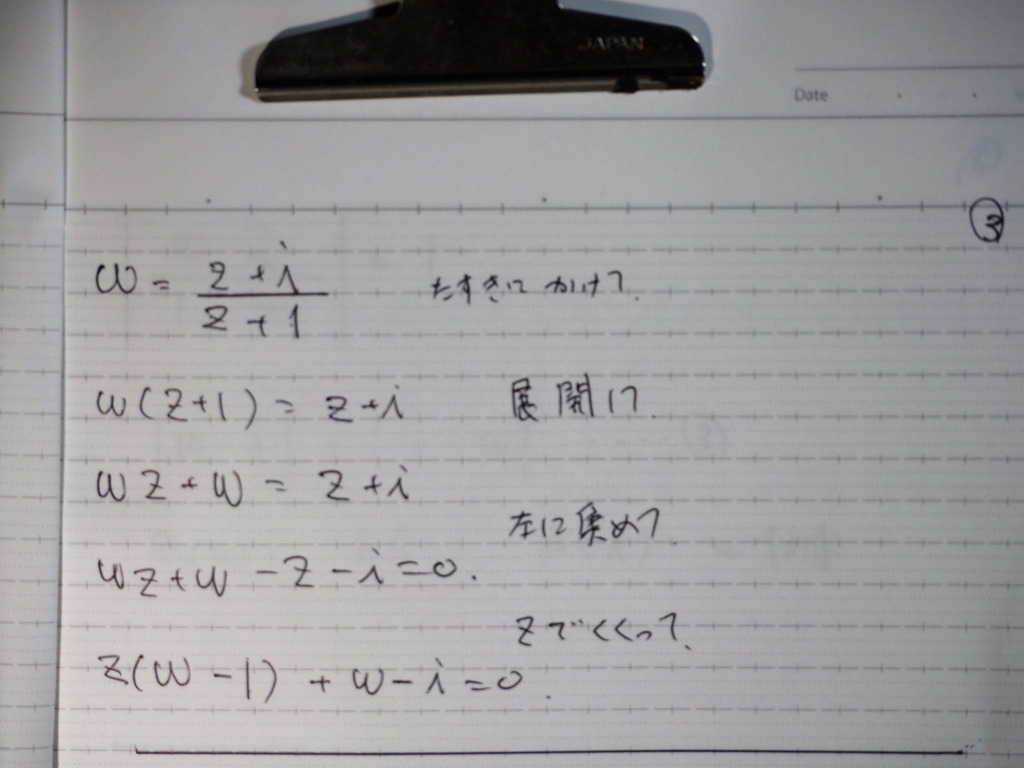 JAPAN
Date
③
w = (z+i)/(z+1) たすきに かけて、
w(z+1) = z+i 展開して、
wz+w = z+i
左に集めて、
wz+w-z-i=0.
zでくくって、
z(w-1)+w-i=0.